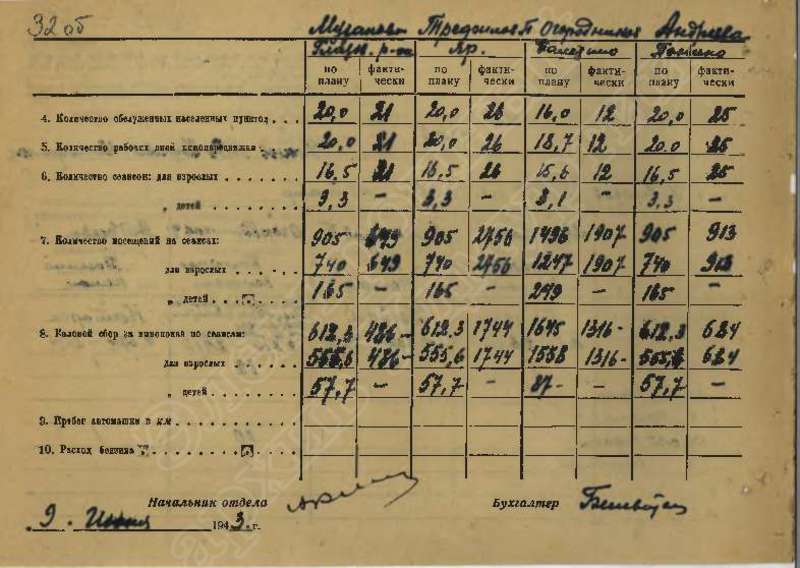 32 об
Андреева
по плану факти-чески по плану факти-чески по плану факти-чески по плану факти-чески
4. Количество обслуженных населенных пунктов . . . 20,0 21 20,0 26 16,0 12 20,0 25
5. Количество рабочих дней кинопередвижки . . . 20,0 21 20,0 26 18,7 12 20.0 25
6. Количество сеансов: для взрослых . . . . . . . 16,5 21 16,5 26 15,6 12 16,5 25
„ детей . . . . . . . . 3,3 – 3,3 – 3,1 – 3,3 –
7. Количество посещений на сеансах: 905 649 905 2756 1496 1907 905 913
для взрослых . . . . . . 740 649 740 2756 1247 1907 740 913
„ детей . . . . . 165 – 165 – 249 – 165 –
8. Валовой сбор за кинопоказ по сеансам: 612,3 486 – 612.3 1744 1645 1316 - 612,3 684
для взрослых . . . . . . 555,6 486 – 555,6 1744 1558 1316 - 555,6 684
„ детей . . . . . . . . 57,7 – 57,7 – 87 - – 57,7 –
9. Пробег автомашин в км . . . . . . . . . .
10. Расход бензина . . . . . .
Начальник отдела Бухгалтер
„9" Июня 1943. г.